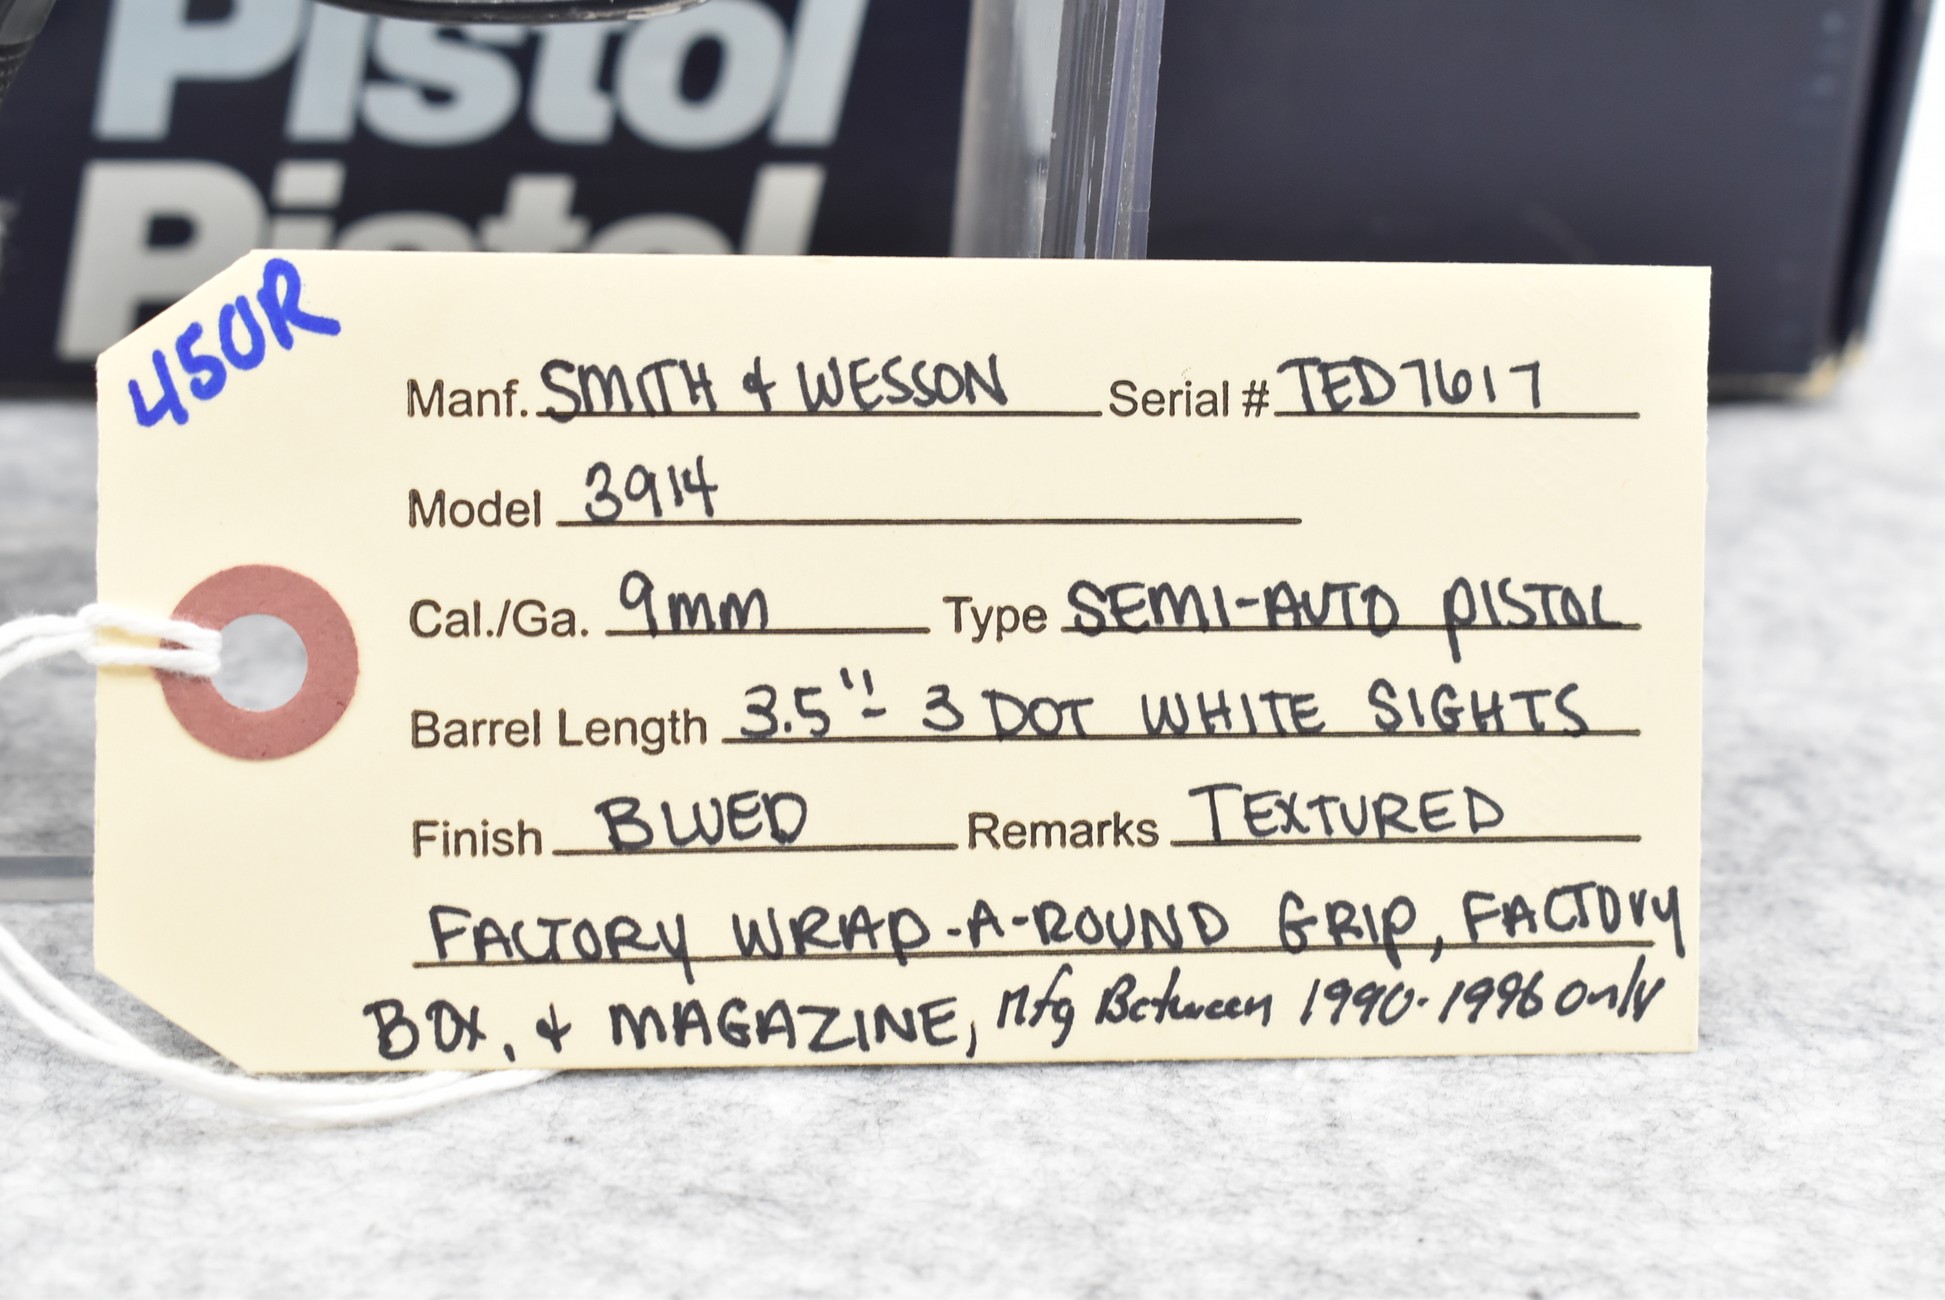 Pistol
Pistol
450R
Manf. SMITH & WESSON Serial # TED7617
Model 3914
Cal./Ga. 9mm Type SEMI-AUTO PISTOL
Barrel Length 3.5"- 3 DOT WHITE SIGHTS
Finish BLUED Remarks TEXTURED
FACTORY WRAP-A-ROUND GRIP, FACTORY
BOX, & MAGAZINE, Mfg Between 1990-1996 only